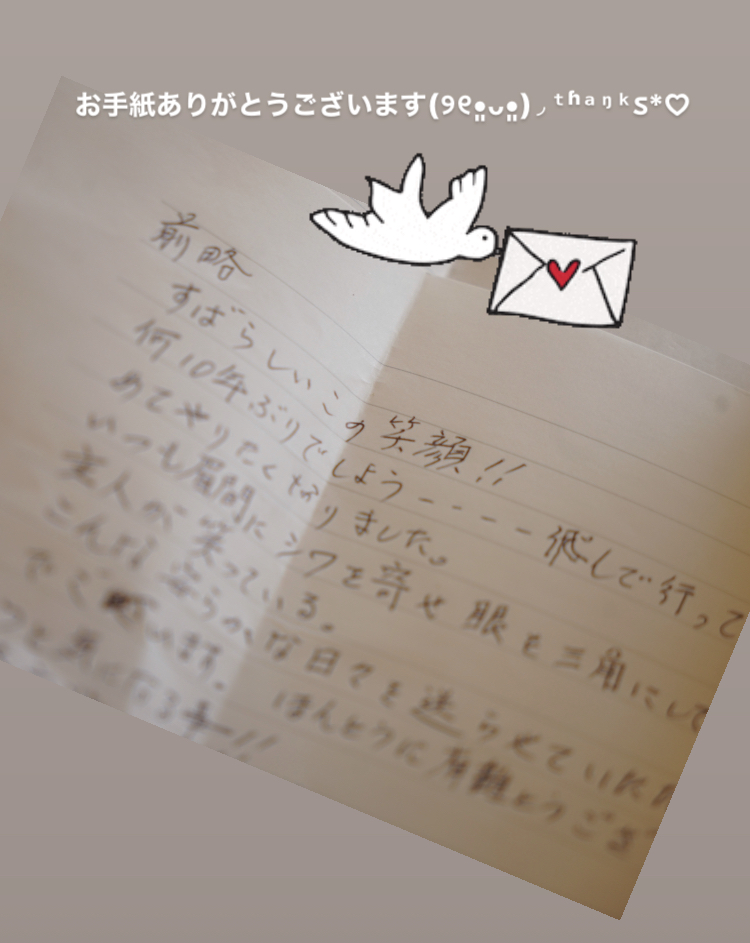 お手紙ありがとうございます(୨୧•̤ᴗ•̤)◞ᵗʱᵃᵑᵏs*♡
前略
すばらしいこの笑顔!!
何10年ぶりでしょう---- しで行って
めてやりたくなりました。
いつも眉間にシワを寄せ眼を三角にして
主人が笑っている。
こんな安らかな日々を送らせていただ
ございます。 ほんとうに有難とうござ
気になる事!!